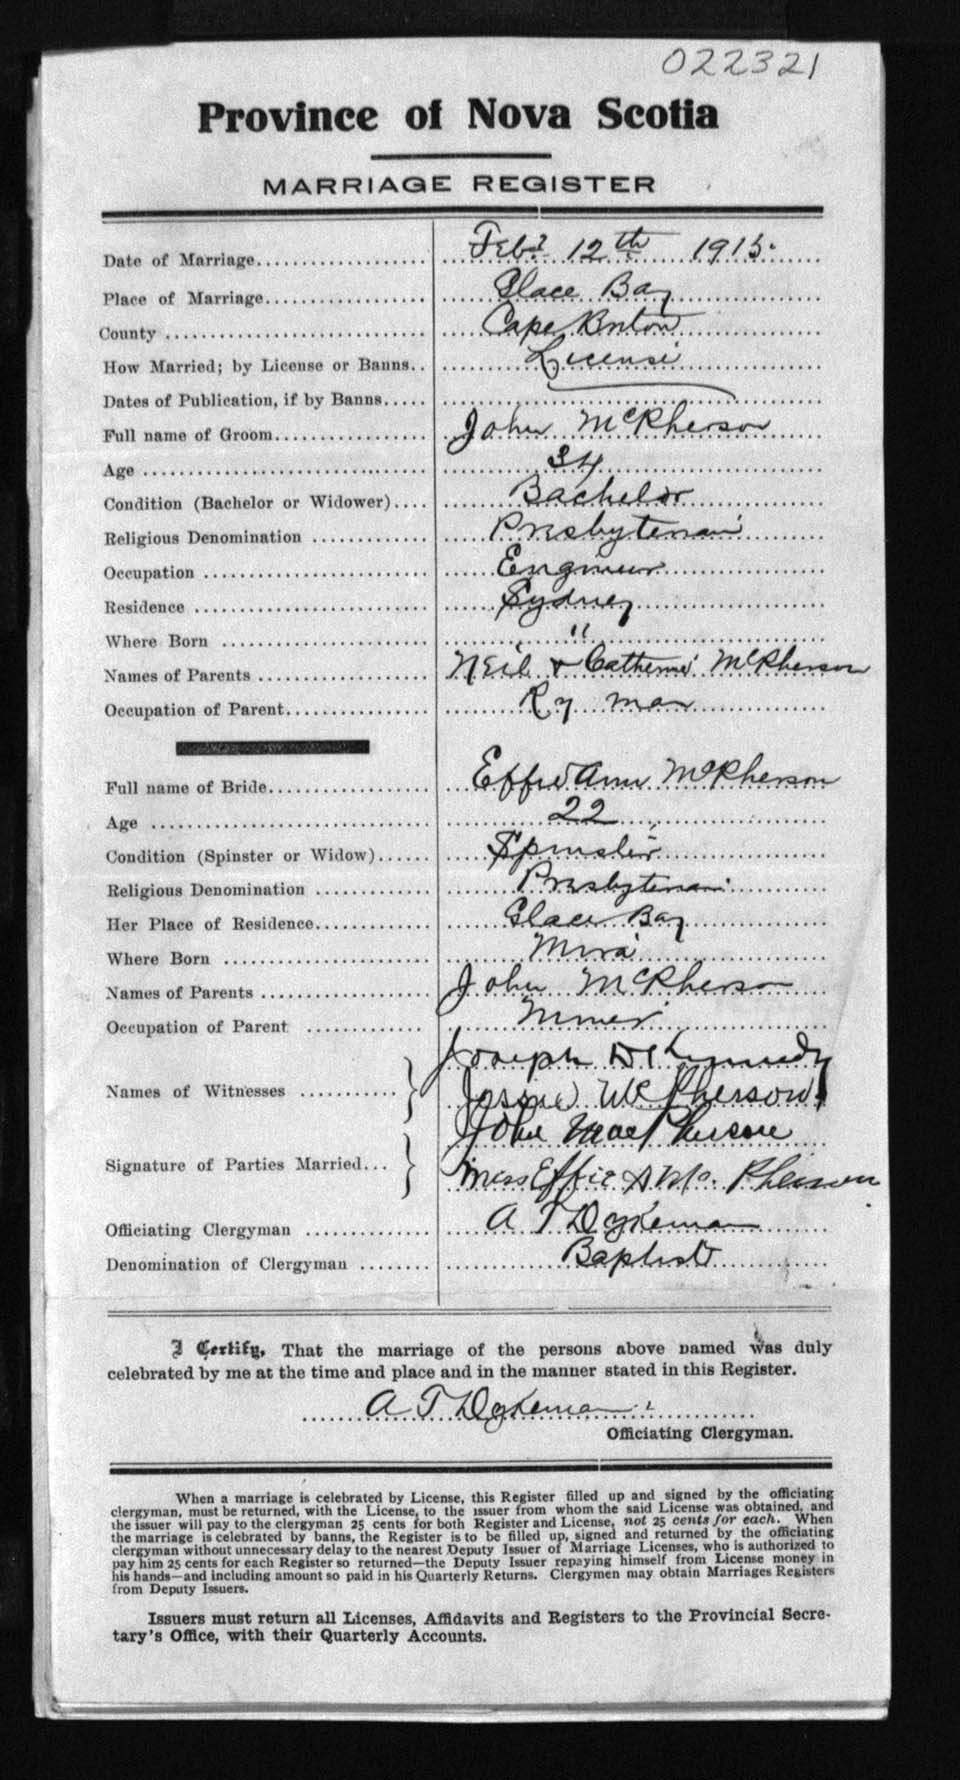 022321
Province of Nova Scotia
MARRIAGE REGISTER
Date of Marriage.................... Feby 12th 1915.
Place of Marriage................... Glace Bay
County ........................... Cape Breton
How Married; by License or Banns.. License
Dates of Publication, if by Banns.....
Full name of Groom.................. John McPherson
Age ............................. 34
Condition (Bachelor or Widower).... Bachelor
Religious Denomination ............. Presbyterian
Occupation ......................... Engineer
Residence .......................... Sydney
Where Born ........................ "
Names of Parents ................... Neil & Catherine McPherson
Occupation of Parent................ Ry man
Full name of Bride................... Effie Ann McPherson
Age .............................. 22
Condition (Spinster or Widow)...... Spinster
Religious Denomination ............. Presbyterian
Her Place of Residence.............. Glace Bay
Where Born ........................ Mira
Names of Parents ................... John McPherson
Occupation of Parent .............. Miner
Names of Witnesses ........... } Joseph D Kennedy
Josie McPherson
Signature of Parties Married... } John MacPherson
Miss Effie A Mc Pherson
Officiating Clergyman .............. A T Dykeman
Denomination of Clergyman ........ Baptist
I Certify, That the marriage of the persons above named was duly
celebrated by me at the time and place and in the manner stated in this Register.
A T Dykeman
Officiating Clergyman.
When a marriage is celebrated by License, this Register filled up and signed by the officiating
clergyman, must be returned, with the License, to the issuer from whom the said License was obtained, and
the issuer will pay to the clergyman 25 cents for both Register and License, not 25 cents for each. When
the marriage is celebrated by banns, the Register is to be filled up, signed and returned by the officiating
clergyman without unnecessary delay to the nearest Deputy Issuer of Marriage Licenses, who is authorized to
pay him 25 cents for each Register so returned—the Deputy Issuer repaying himself from License money in
his hands—and including amount so paid in his Quarterly Returns. Clergymen may obtain Marriages Registers
from Deputy Issuers.
Issuers must return all Licenses, Affidavits and Registers to the Provincial Secre-
tary's Office, with their Quarterly Accounts.